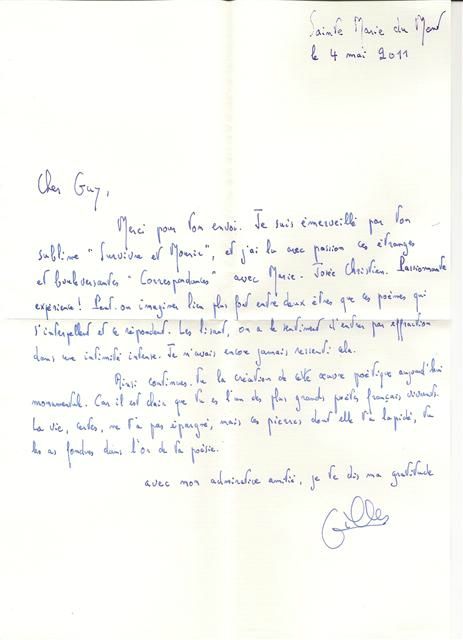 Sainte Marie du Mont
le 4 mai 2011
Cher Guy,
Merci pour ton envoi. Je suis émerveillé par ton
sublime "Survivre et Mourir", et j'ai lu avec passion ces étranges
et bouleversantes "Correspondances" avec Marie-Josée Christien. Passionnante
expérience ! Peut-on imaginer lien plus fort entre deux êtres que ces poèmes qui
s'interpellent et se répondent. Les lisant, on a le sentiment d'entrer par effraction
dans une intimité intense. Je n'avais encore jamais ressenti cela.
Ainsi continues-tu la création de cette œuvre poétique aujourd'hui
monumentale. Car il est clair que tu es l'un des plus grands poètes français vivants.
La vie, certes, ne t'a pas épargné, mais ces pierres dont elle t'a lapidé, tu
les as fondues dans l'or de ta poésie.
avec mon admirative amitié, je te dis ma gratitude
Gilles